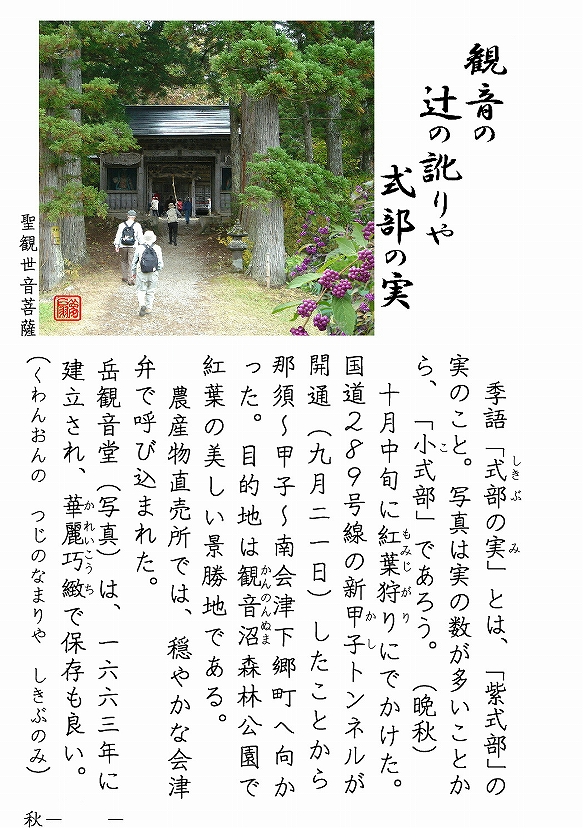 観音の
辻の訛りや
式部の実
聖観世音菩薩
季語「式部の実」とは、「紫式部」の
実のこと。写真は実の数が多いことか
ら、「小式部」であろう。（晩秋）
十月中旬に紅葉狩りにでかけた。
国道２８９号線の新甲子トンネルが
開通（九月二一日）したことから
那須～甲子～南会津下郷町へ向か
った。目的地は観音沼森林公園で
紅葉の美しい景勝地である。
農産物直売所では、穏やかな会津
弁で呼び込まれた。
岳観音堂（写真）は、一六六三年に
建立され、華麗巧緻で保存も良い。
（くわんおんの　つじのなまりや　しきぶのみ）
秋－　－